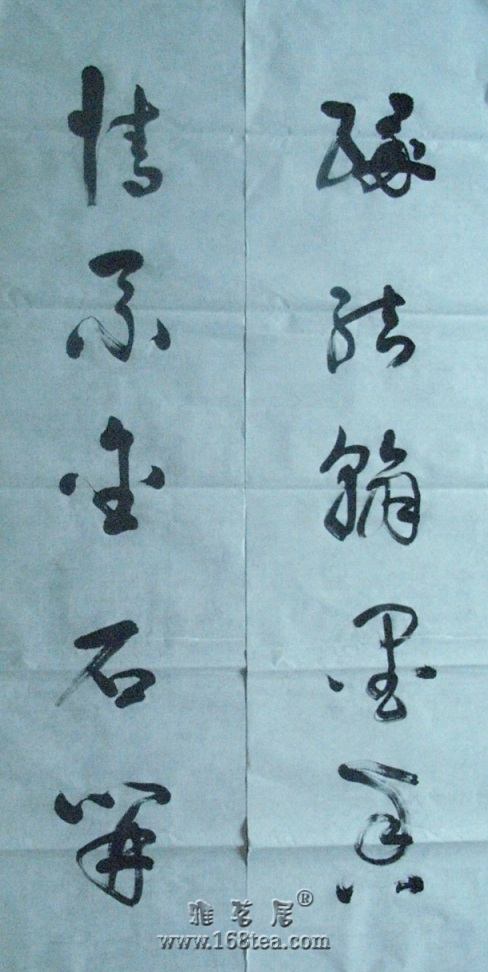 缘结翰墨
情系金石開
雅茗居®
www.168tea.com